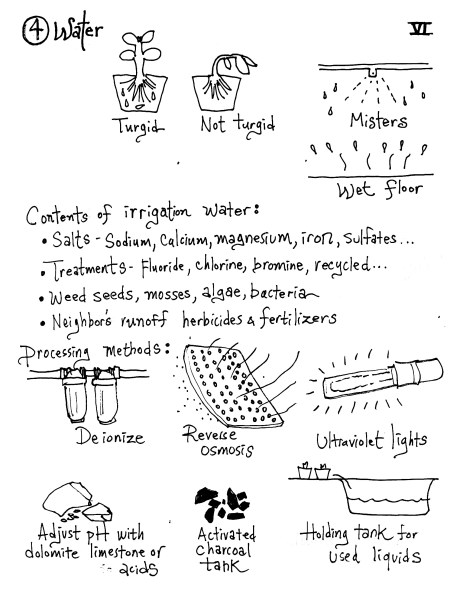 ④ Water
VI
Turgid
Not turgid
Misters
Wet floor
Contents of irrigation water:
• Salts - Sodium, Calcium, magnesium, iron, sulfates...
• Treatments - Fluoride, chlorine, bromine, recycled...
• Weed seeds, mosses, algae, bacteria
• Neighbor's runoff herbicides & fertilizers
Processing methods:
Deionize
Reverse
osmosis
Ultraviolet lights
Adjust pH with
dolomite limestone or
acids
Activated
charcoal
tank
Holding tank for
used liquids